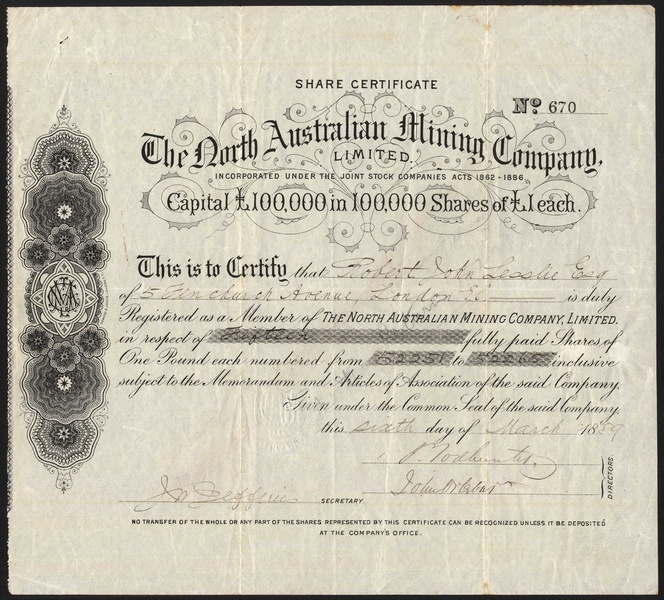 SHARE CERTIFICATE
No 670
The North Australian Mining Company,
LIMITED.
INCORPORATED UNDER THE JOINT STOCK COMPANIES ACTS 1862-1886.
Capital £100,000 in 100,000 Shares of £1 each.
This is to Certify that Robert John Lesslie Esq
of 5 Fenchurch Avenue, London is duly
Registered as a Member of THE NORTH AUSTRALIAN MINING COMPANY, LIMITED.
in respect of Fifteen fully paid Shares of
One Pound each numbered from 52251 to 52265 inclusive
subject to the Memorandum and Articles of Association of the said Company.
Given under the Common Seal of the said Company,
this sixth day of March 1889
DIRECTORS.
SECRETARY.
NO TRANSFER OF THE WHOLE OR ANY PART OF THE SHARES REPRESENTED BY THIS CERTIFICATE CAN BE RECOGNIZED UNLESS IT BE DEPOSITED
AT THE COMPANY'S OFFICE.